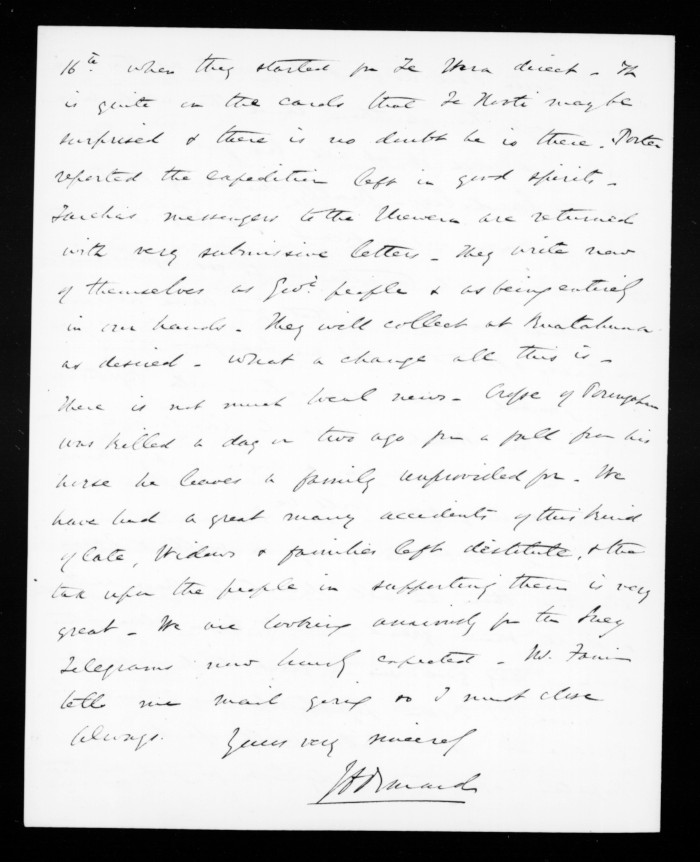 16th when they started for Te Wera direct - It
is quite on the cards that Te Kooti may be
surprised & there is no doubt he is there. Porter
reported the expedition left in good spirits -
Tareha's messengers to the Urewera are returned
with very submissive letters - They write now
of themselves as Govt people & as being entirely
in our hands - They will collect at Ruatahuna
as desired - What a change all this is -
There is not much local news - Crosse of Porangahau
was killed a day or two ago from a fall from his
horse he leaves a family unprovided for - We
have had a great many accidents of this kind
of late, Widows & families left destitute, & the
tax upon the people in supporting them is very
great - We are looking anxiously for the Suez
Telegrams now hourly expected - Mr.
tells me mail going so I must close
Always. Yours very sincerely
JD Ormond